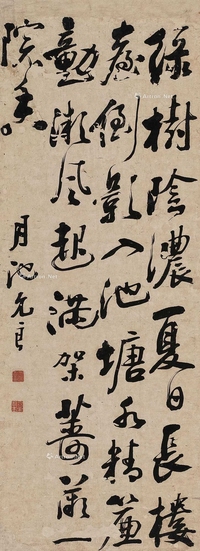 綠樹陰濃夏日長樓
臺倒影入池塘水精簾
動微風起滿架薔薇一
院香
月池允良